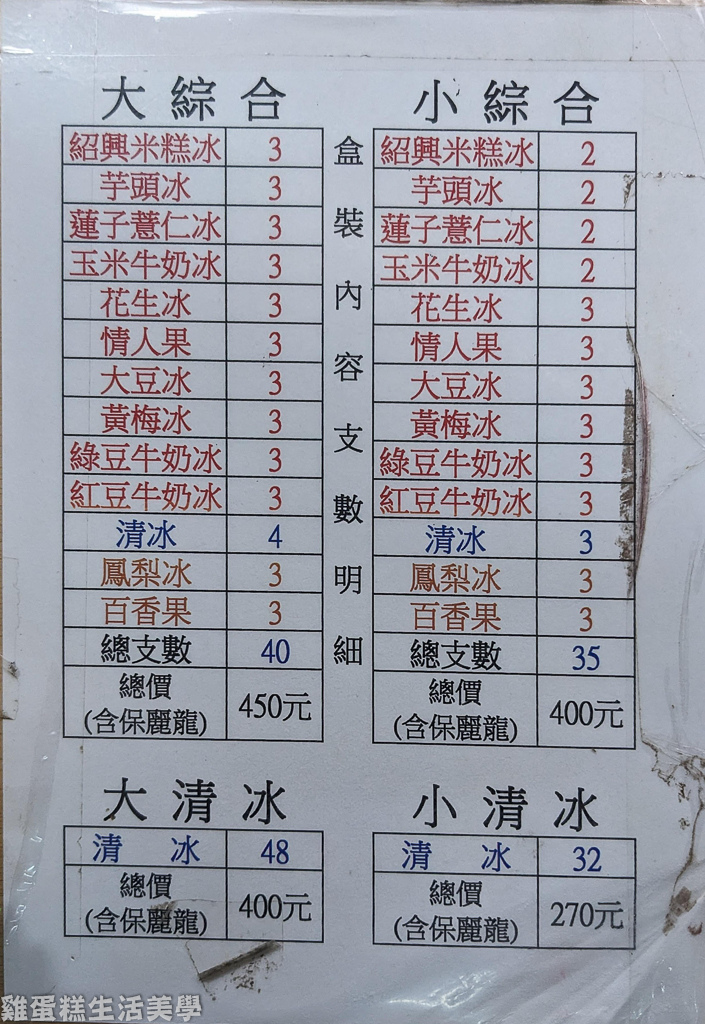 大綜合
紹興米糕冰 3
芋頭冰 3
蓮子薏仁冰 3
玉米牛奶冰 3
花生冰 3
情人果 3
大豆冰 3
黃梅冰 3
綠豆牛奶冰 3
紅豆牛奶冰 3
清冰 4
鳳梨冰 3
百香果 3
總支數 40
總價
(含保麗龍) 450元
盒裝內容支數明細
小綜合
紹興米糕冰 2
芋頭冰 2
蓮子薏仁冰 2
玉米牛奶冰 2
花生冰 3
情人果 3
大豆冰 3
黃梅冰 3
綠豆牛奶冰 3
紅豆牛奶冰 3
清冰 3
鳳梨冰 3
百香果 3
總支數 35
總價
(含保麗龍) 400元
大清冰
清 冰 48
總價
(含保麗龍) 400元
小清冰
清 冰 32
總價
(含保麗龍) 270元
雞蛋糕生活美學